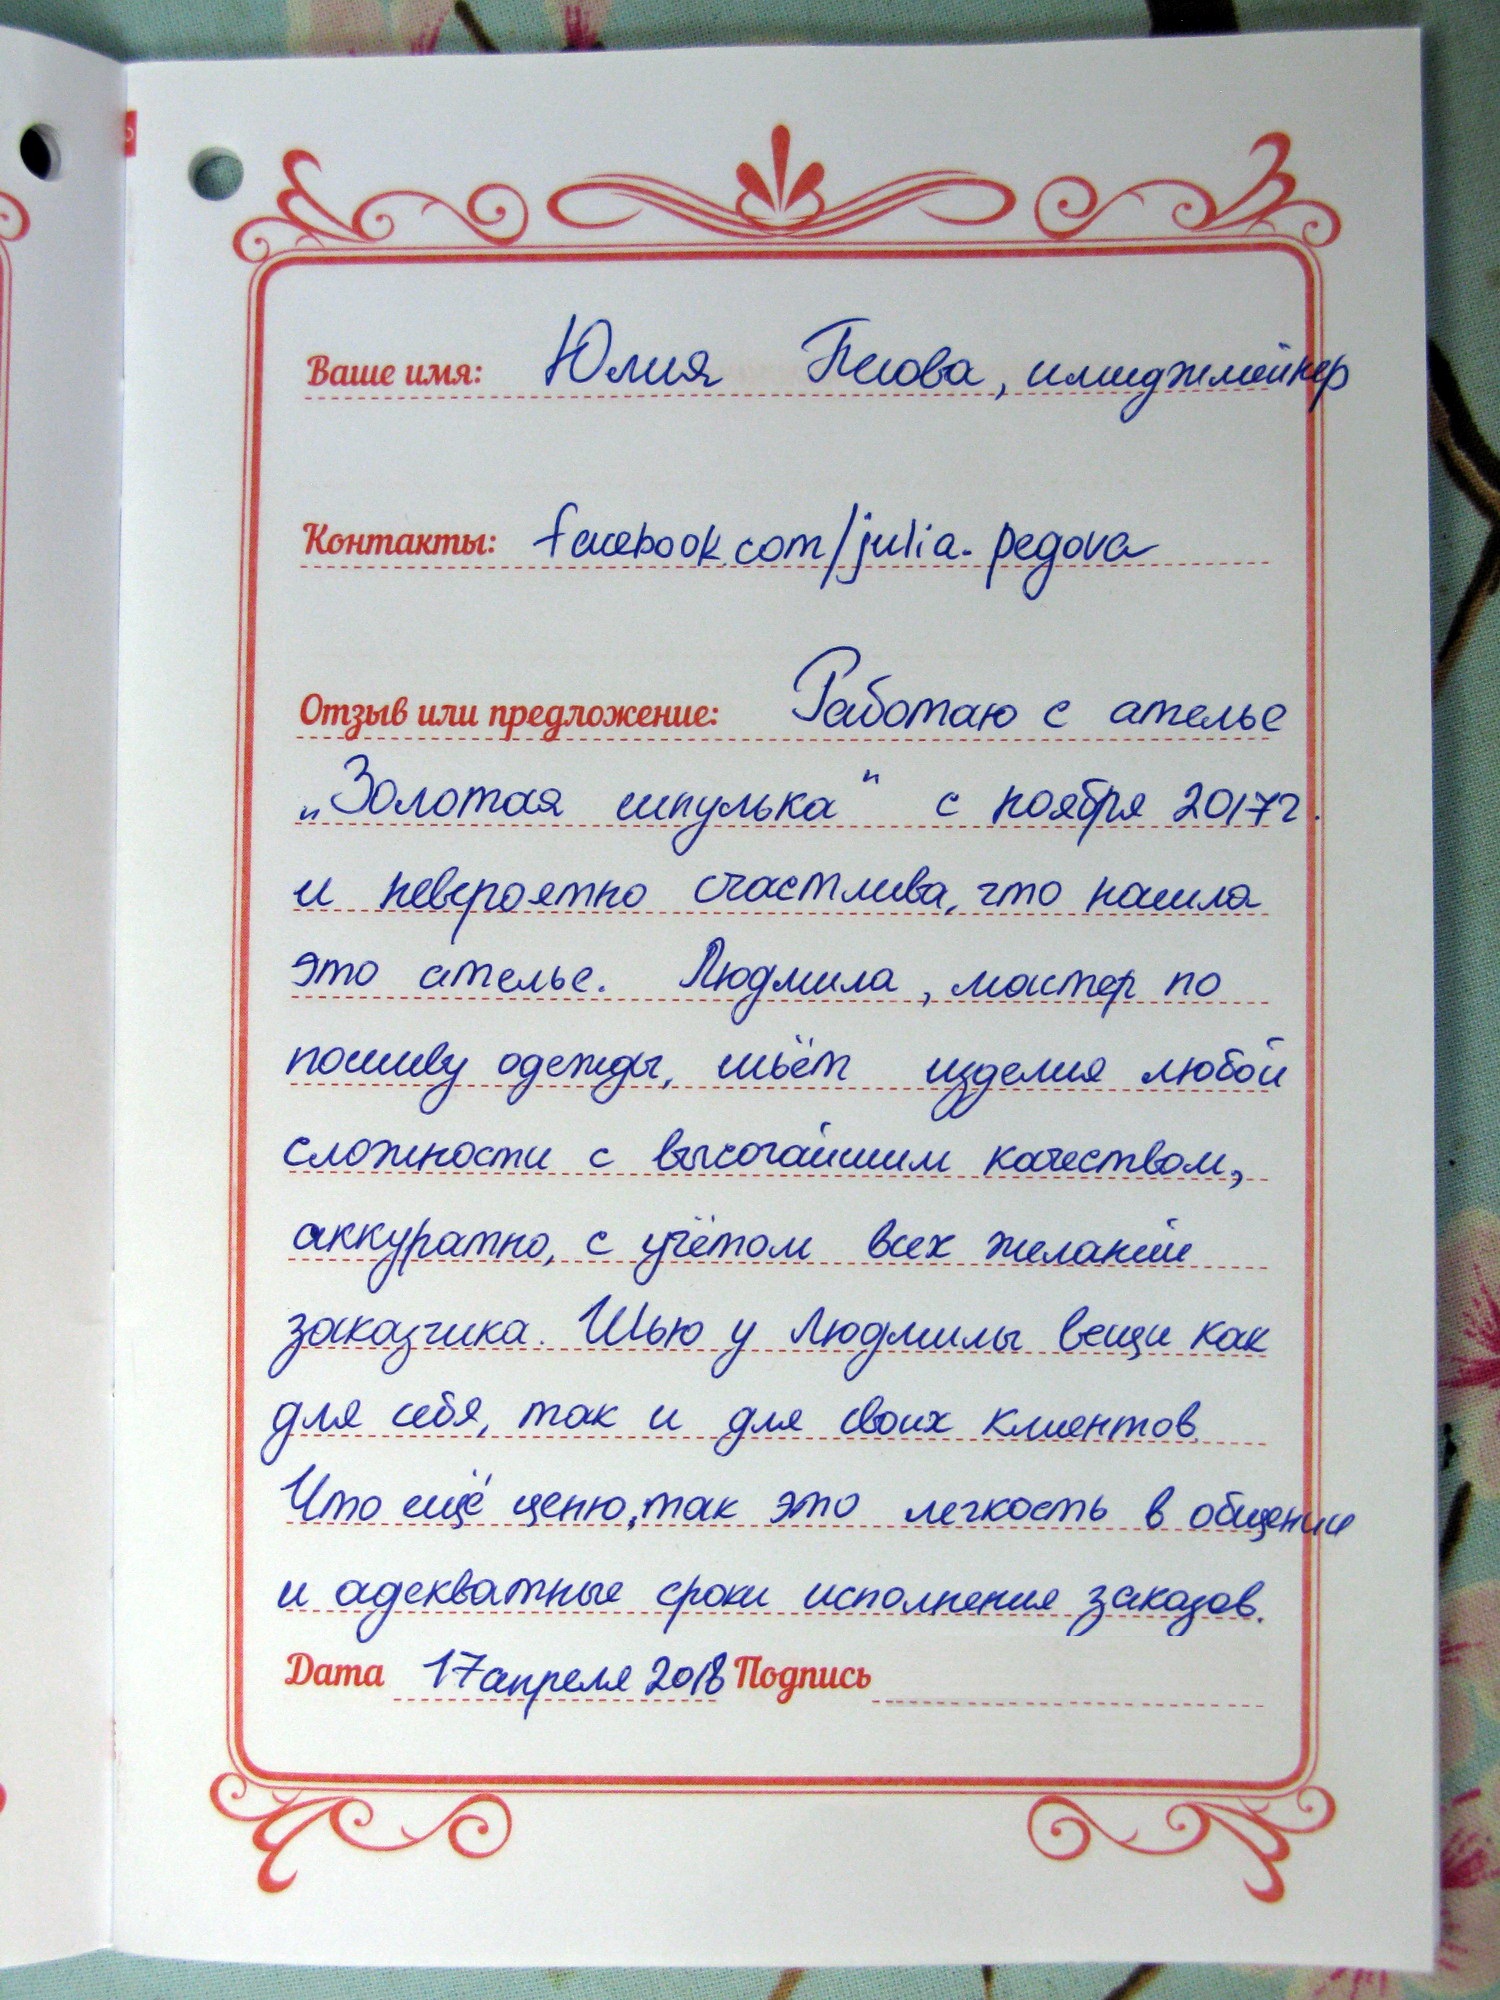 Ваше имя: Юлия Пегова, имиджмейкер
Контакты: facebook.com/julia.pegova
Отзыв или предложение: Работаю с ателье
„Золотая шпулька" с ноября 2017г.
и невероятно счастлива, что нашла
это ателье. Людмила, мастер по
пошиву одежды, шьёт изделия любой
сложности с высочайшим качеством,
аккуратно, с учётом всех желаний
заказчика. Шью у Людмилы вещи как
для себя, так и для своих клиентов.
Что ещё ценю, так это легкость в общении
и адекватные сроки исполнения заказов.
Дата 17 апреля 2018 Подпись